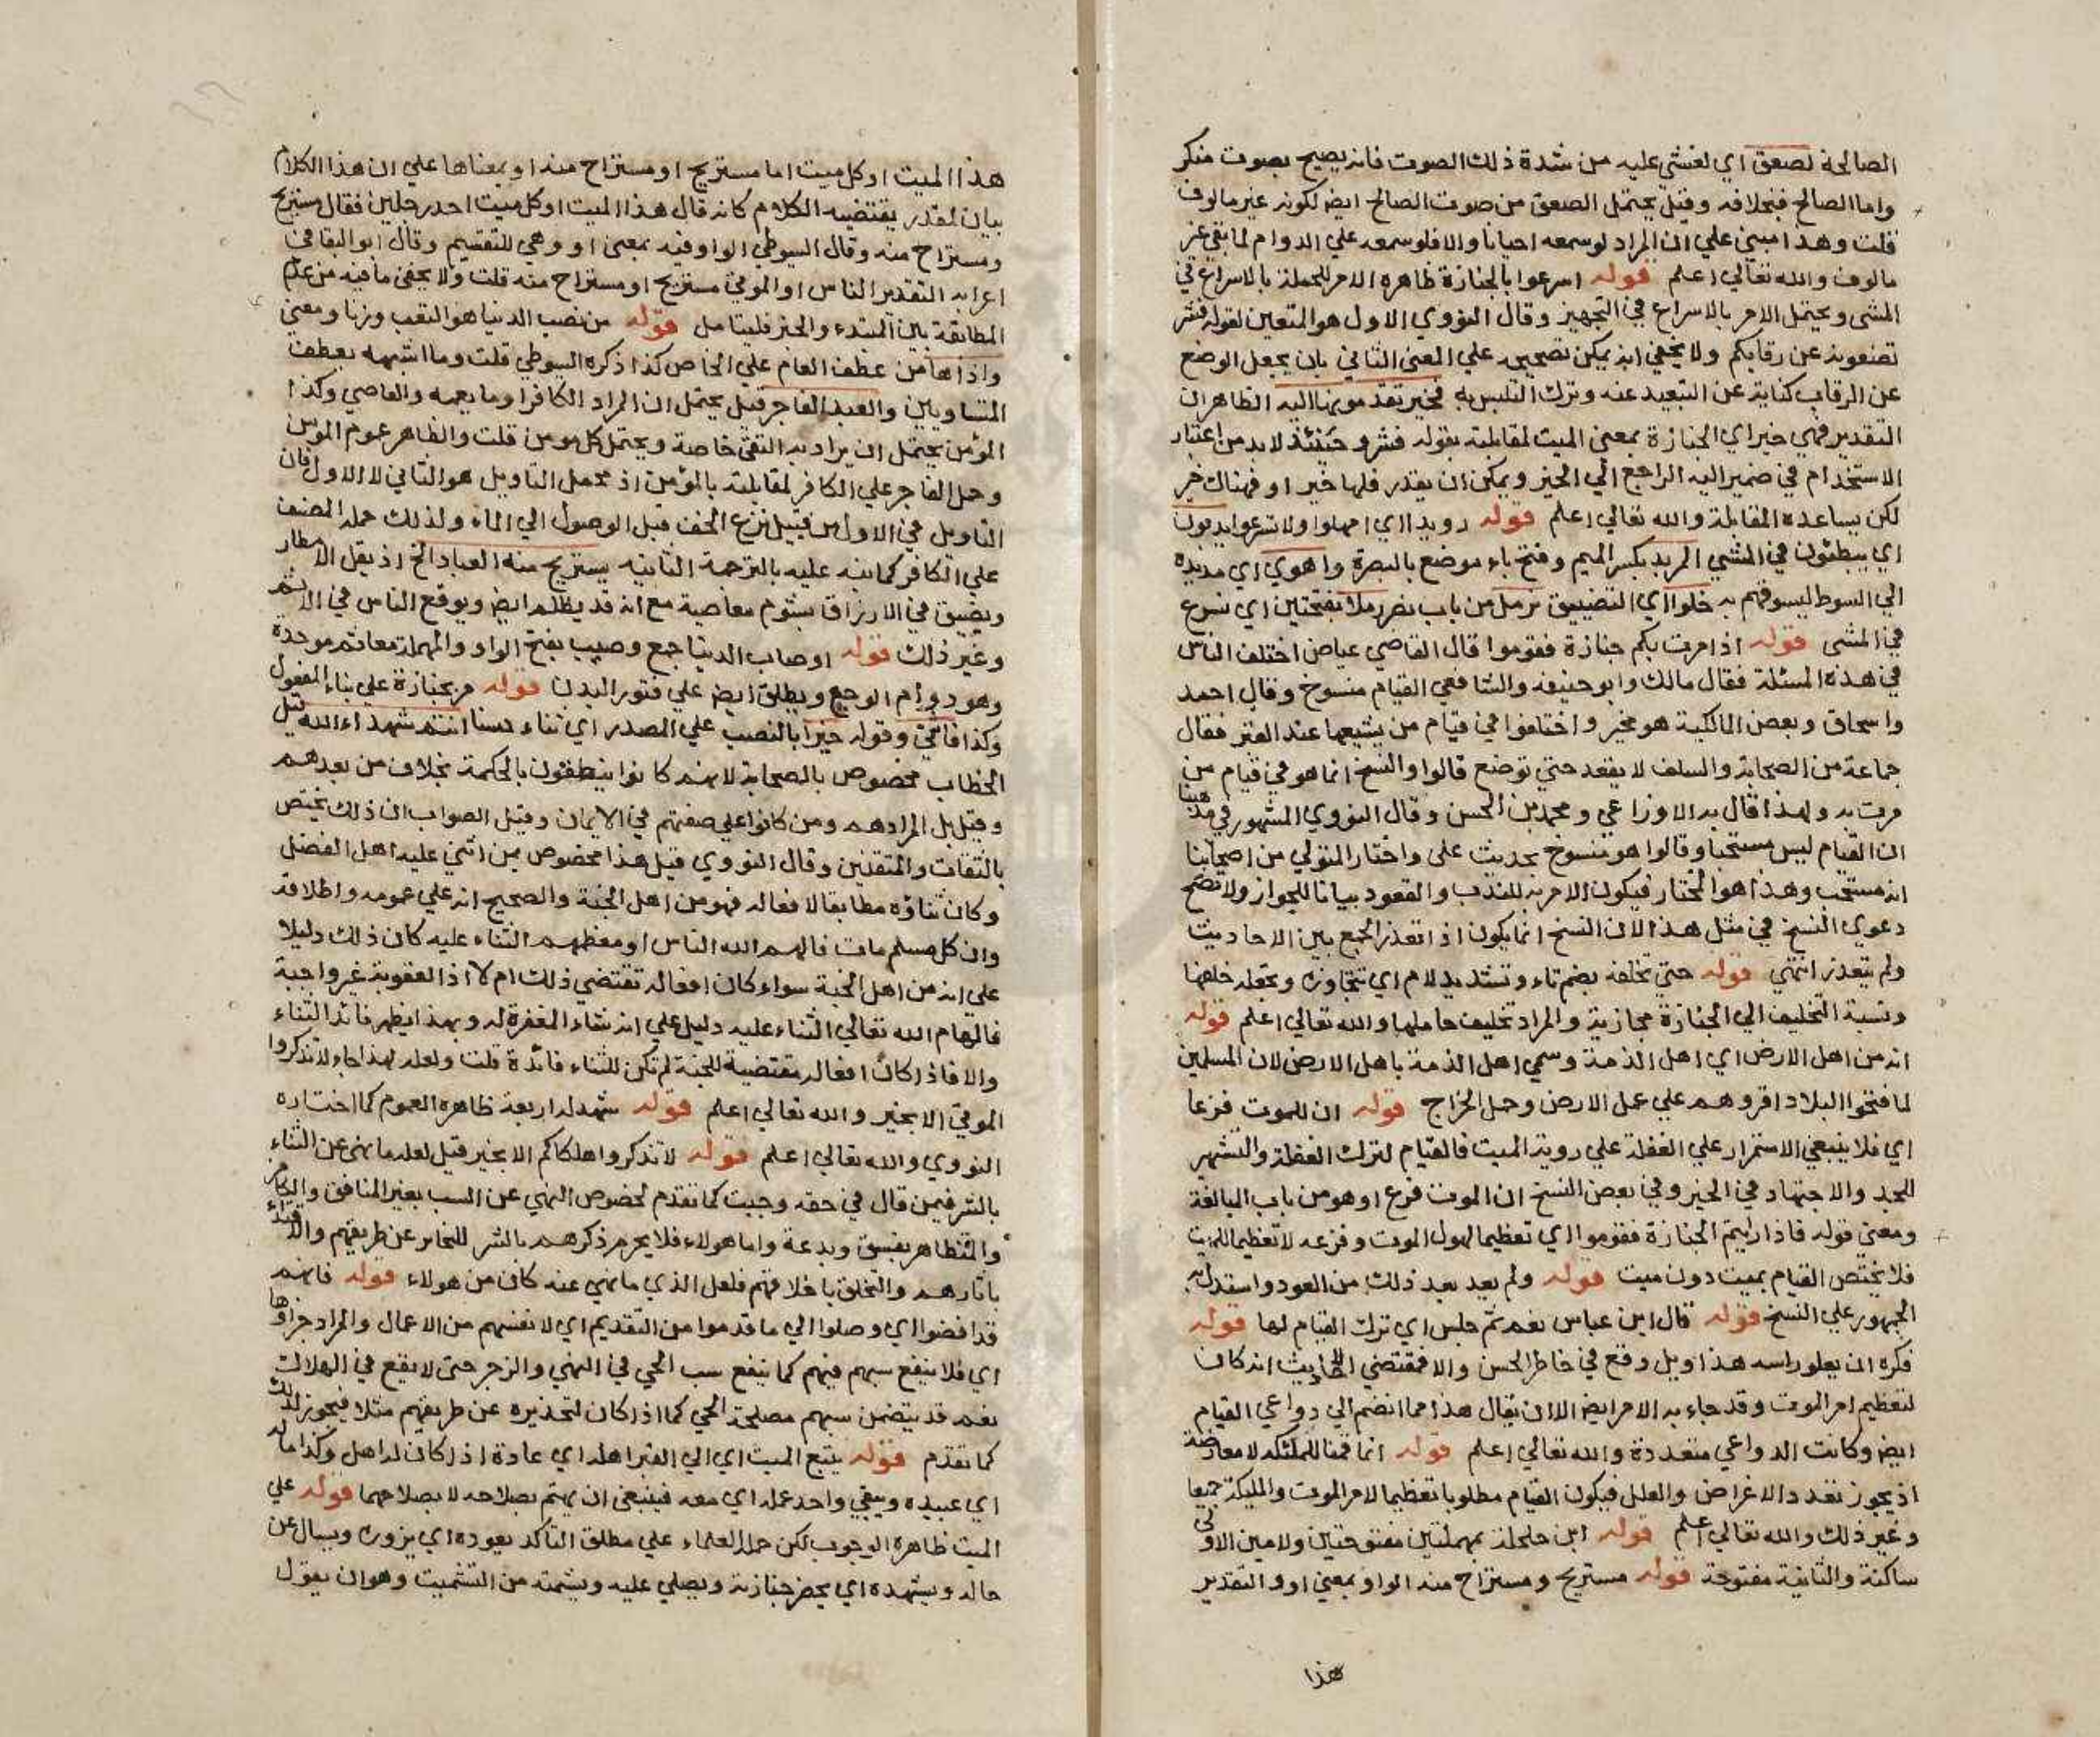 الصالحة لصعق اي لغشي عليه من شدة ذلك الصوت فانه يصيح بصوت منكر
واما الصالح فبخلافه وقيل يحتمل الصعق من صوت الصالح ايضا لكونه غير مالوف
قلت وهذا مبني علي ان المراد لوسمعه احيانا والا فلوسمعه علي الدوام لما بقي غير
مالوف والله تعالي اعلم قوله اسرعوا بالجنازة ظاهره الامر للحملة بالاسراع في
المشي ويحتمل الامر بالاسراع في التجهيز وقال النووي الاول هو المتعين لقوله فشر
تضعونه عن رقابكم ولا يخفي انه يمكن تصحيحه علي المعني الثاني بان يجعل الوضع
عن الرقاب كناية عن التبعيد عنه وترك التلبس به فخير تقدمونها اليه الظاهر ان
التقدير فهي خير اي الجنازة بمعني الميت لمقابلته بقوله فشر وحينئذ لا بد من اعتبار
الاستخدام في ضمير اليه الراجع الي الخير ويمكن ان يقدر فلها خير او فهناك خير
لكن يساعده المقابلة والله تعالي اعلم قوله رويدا اي امهلوا ولا تسرعوا يدبون
اي يبطئون في المشي المربد بكسر الميم وفتح باء موضع بالبصرة واهوي اي مد يده
الي السوط ليسوقهم به خلوا اي التضييق نرمل من باب نصر رملا بفتحتين اي نسرع
في المشي قوله اذا مرت بكم جنازة فقوموا قال القاضي عياض اختلف الناس
في هذه المسئلة فقال مالك وابو حنيفة والشافعي القيام منسوخ وقال احمد
واسحاق وبعض المالكية هو مخير واختلفوا في قيام من يشيعها عند القبر فقال
جماعة من الصحابة والسلف لا يقعد حتي توضع قالوا والنسخ انما هو في قيام من
مرت به ولهذا قال به الاوزاعي ومحمد بن الحسن وقال النووي المشهور في مذهبنا
ان القيام ليس مستحبا وقالوا هو منسوخ بحديث علي واختار المتولي من اصحابنا
انه مستحب وهذا هو المختار فيكون الامر به للندب والقعود بيانا للجواز ولا تصح
دعوي النسخ في مثل هذا لان النسخ انما يكون اذا تعذر الجمع بين الاحاديث
ولم يتعذر انتهي قوله حتي تخلفه بضم تاء وتشديد لام اي تتجاوزه وتجعله خلفها
ونسبة التخليف الي الجنازة مجازية والمراد تخليف حاملها والله تعالي اعلم قوله
انه من اهل الارض اي اهل الذمة وسمي اهل الذمة باهل الارض لان المسلمين
لما فتحوا البلاد اقروهم علي عمل الارض وحمل الخراج قوله ان للموت فزعا
اي فلا ينبغي الاستمرار علي الغفلة علي روية الميت فالقيام لترك الغفلة والتشهير
للجد والاجتهاد في الخير وفي بعض النسخ ان الموت فزع او هو من باب المبالغة
ومعني قوله فاذا رايتم الجنازة فقوموا اي تعظيما لهول الموت وفزعه لا تعظيما للميت
فلا يختص القيام بميت دون ميت قوله ولم يعد بعد ذلك من العود واستدل به
الجمهور علي النسخ قوله قال ابن عباس نعم ثم جلس اي ترك القيام لها قوله
فكره ان يعلو راسه هذا ويل وقع في خاطر الحسن والا فمقتضي الاحاديث انه كان
لتعظيم امر الموت وقد جاء به الامر ايضا الا ان يقال هذا مما انضم الي دواعي القيام
ايضا وكانت الدواعي متعددة والله تعالي اعلم قوله انما قمنا للملئكه لا معارضة
اذ يجوز تعدد الاغراض والعلل فيكون القيام مطلوبا تعظيما لامر الموت والمليكة جميعا
وغير ذلك والله تعالي اعلم قوله ابن حلحلة بمهملتين مفتوحتين ولامين الاولي
ساكنة والثانية مفتوحة قوله مستريح ومستراح منه الواو بمعني او والتقدير
هذا
هذا الميت او كل ميت اما مستريح او مستراح منه او بمعناها علي ان هذا الكلام
بيان لمقدر يقتضيه الكلام كانه قال هذا الميت او كل ميت احد رجلين فقال مستريح
ومستراح منه وقال السيوطي الواو فيه بمعني او وهي للتقسيم وقال ابو البقا في
اعرابه التقدير الناس او الموتي مستريح او مستراح منه قلت ولا يخفي ما فيه من عدم
المطابقة بين المبتدء والخبر فليتامل قوله من نصب الدنيا هو التعب وزنا ومعني
واذاها من عطف العام علي الخاص كذا ذكره السيوطي قلت وما اشبهه بعطف
المتساويين والعبد الفاجر قيل يحتمل ان المراد الكافر او ما يعمه والعاصي وكذا
المؤمن يحتمل ان يراد به التقي خاصة ويحتمل كل مومن قلت والظاهر عموم المومن
وحمل الفاجر علي الكافر لمقابلته بالمؤمن اذ محمل التاويل هو الثاني لا الاول فان
التاويل في الاول من قبيل نزع الخف قبل الوصول الي الماء ولذلك حمله المصنف
علي الكافر كما نبه عليه بالترجمة الثانية يستريح منه العباد الخ اذ يقل الامطار
ويضيق في الارزاق بشوم معاصيه مع انه قد يظلم ايضا ويوقع الناس في الاثم
وغير ذلك قوله اوصاب الدنيا جمع وصب بفتح الواو والمهملة معا ثم موحدة
وهو دوام الوجع ويطلق ايضا علي فتور البدن قوله مر بجنازة علي بناء المفعول
وكذا فاثني وقوله خيرا بالنصب علي المصدر اي ثناء حسنا انتم شهداء الله قيل
الخطاب مخصوص بالصحابة لانهم كانوا ينطقون بالحكمة بخلاف من بعدهم
وقيل بل المراد هم ومن كانوا علي صفتهم في الايمان وقيل الصواب ان ذلك يختص
بالثقات والمتقين وقال النووي قيل هذا مخصوص بمن اثني عليه اهل الفضل
وكان ثناؤه مطابقا لافعاله فهو من اهل الجنة والصحيح انه علي عمومه واطلاقه
وان كل مسلم مات فالهم الله الناس او معظمهم الثناء عليه كان ذلك دليلا
علي انه من اهل الجنة سواء كان افعاله تقتضي ذلك ام لا اذ العقوبة غير واجبة
فالهام الله تعالي الثناء عليه دليل علي انه شاء المغفرة له وبهذا يظهر فائدة الثناء
والا فاذا كان افعاله مقتضية للجنة لم تكن للثناء فائدة قلت ولعله لهذا جاء لا تذكروا
الموتي الا بخير والله تعالي اعلم قوله شهد له اربعة ظاهره العموم كما اختاره
النووي والله تعالي اعلم قوله لا تذكروا هلكاكم الا بخير قيل لعله ما نهي عن الثناء
بالشر فيمن قال في حقه وجبت كما تقدم لخصوص النهي عن السب بغير المنافق والكافر
والمتظاهر بفسق وبدعة واما هولاء فلا يحرم ذكرهم بالشر للتحذير عن طريقهم والاقتداء
باثارهم والتخلق باخلاقهم فلعل الذي ما نهي عنه كان من هولاء قوله فانهم
قد افضوا اي وصلوا الي ما قدموا من التقديم اي لانفسهم من الاعمال والمراد جزاوها
اي فلا ينفع سبهم فيهم كما ينفع سب الحي في النهي والزجر حتي لا يقع في الهلاك
نعم قد يتضمن سبهم مصلحة الحي كما اذا كان لتحذيره عن طريقهم مثلا فيجوز لذلك
كما تقدم قوله يتبع الميت اي الي القبر اهله اي عادة اذا كان له اهل وكذا ماله
اي عبيده ويبقي واحد عمله اي معه فينبغي ان يهتم بصلاحه لا بصلاحهما قوله علي
الميت ظاهره الوجوب لكن حمله العلماء علي مطلق التاكد يعوده اي يزوره ويسال عن
حاله ويشهده اي يحضر جنازته ويصلي عليه ويشمته من التشميت وهو ان يقول